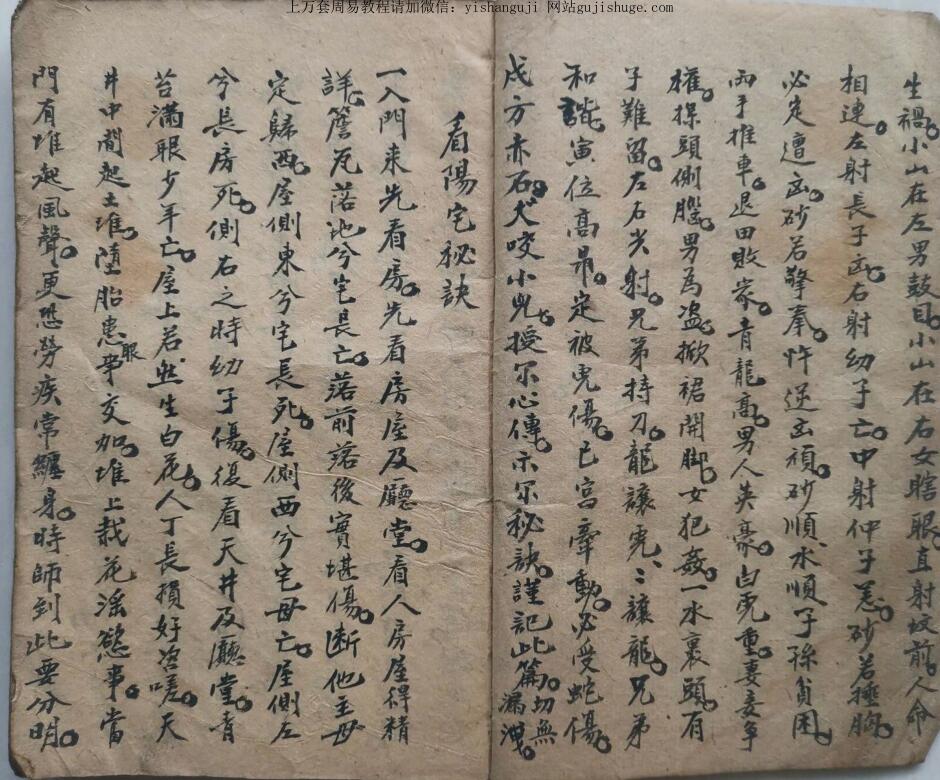 上万套周易教程请加微信：yishanguji 网站gujishuge.com
生禍。小山在左男鼓目。小山在右女瞎眼。直射坟前。人命
相連。左射長子凶。右射幼子亡。中射仲子忌。砂若搥胸。
必定遭凶。砂若擎拳。忤逆凶頑。砂順水順子孫貧困。
两手推車。退田敗家。青龍高。男人英豪。白虎重。妻妾争
權。探頭側腦。男為盗。掀裙開脚。女犯姦。一水裹頭。有
子難留。左右尖射。兄弟持刀。龍讓虎、虎讓龍。兄弟
和諧。寅位高昂。定被虎傷。巳宫牽動。必受蛇傷。
戌方赤石。犬咬小兒。授尔心傳。示尔秘訣。謹記此篇。切無漏洩。
看陽宅秘訣
一入門来先看房。先看房屋及廳堂。看人房屋得精
詳。簷瓦落地兮宅長亡。落前落後實堪傷。断他主母
定歸西。屋側東兮宅長死。屋側西兮宅母亡。屋側左
兮長房死。側右之時幼子傷。後看天井及廳堂。青
苔滿眼少年亡。屋上若然生白花。人丁長損好咨嗟。天
井中間起土堆。墮胎患眼事交加。堆上栽花淫慾事。當
門有堆起風聲。更恐勞疾常纏身。時師到此要分明。